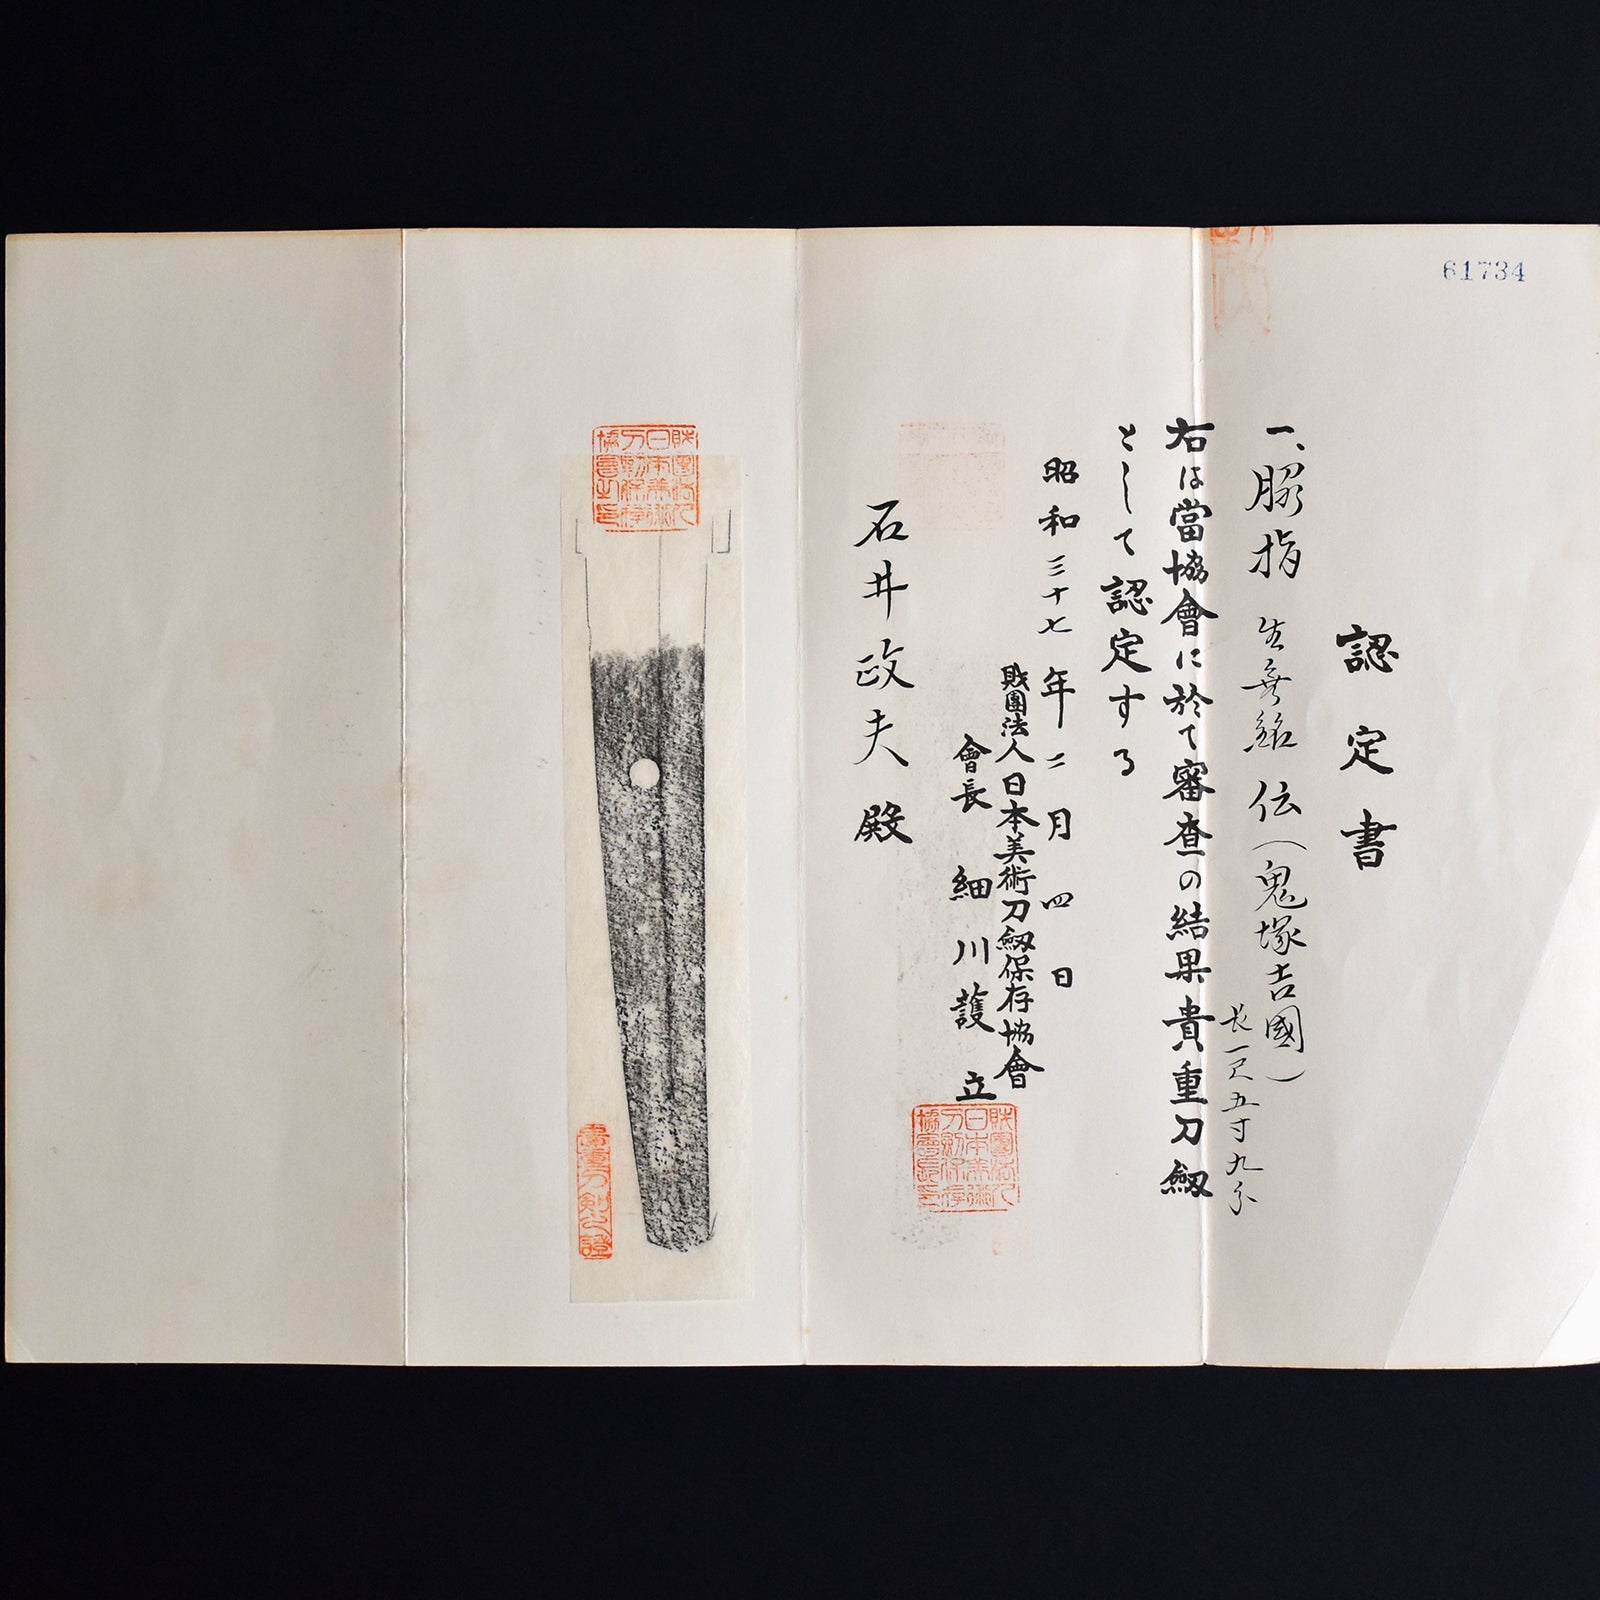 61734
認定書
一、脇指 生無銘 伝(鬼塚吉國)
長一尺五寸九分
右は當協會に於て審査の結果貴重刀劔
として認定する
昭和三十七年二月四日
財團法人日本美術刀劔保存協會
會長 細川護立
財團法人日本美術刀剣保存協會長之印
石井政夫殿
財團法人日本美術刀剣保存協會長之印
貴重刀剣之證